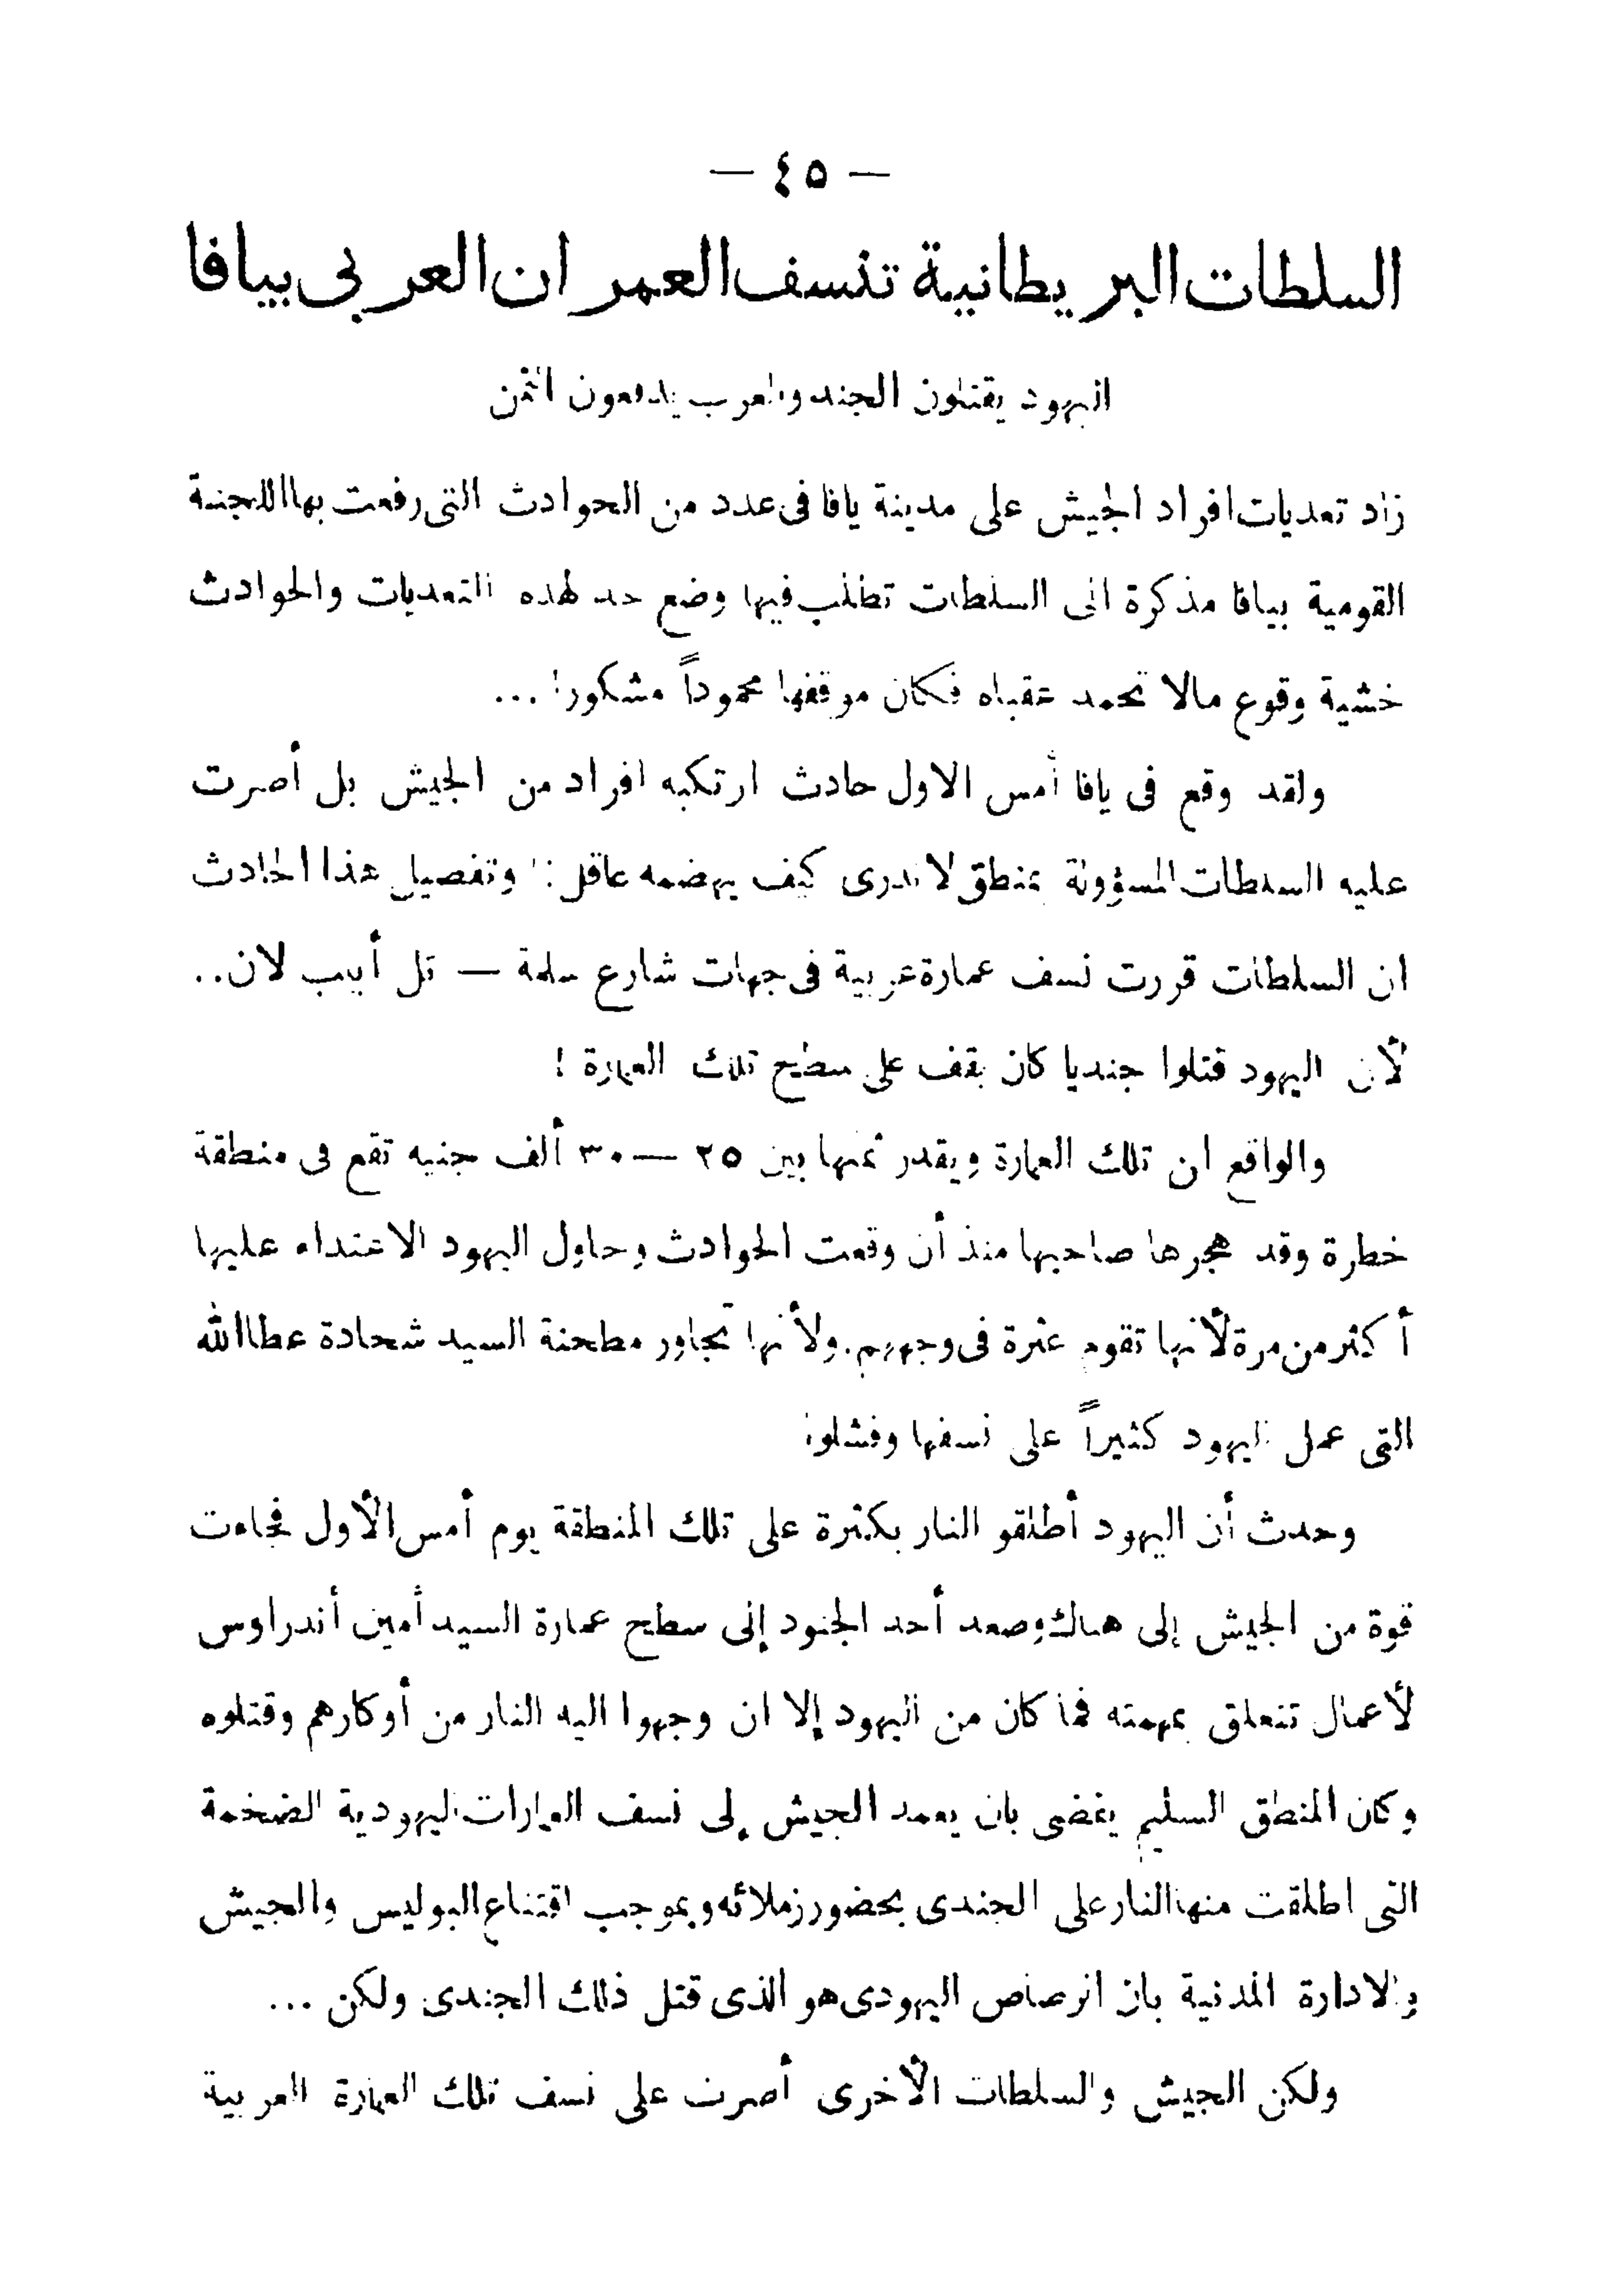 — ٤٥ —
السلطات البريطانية تنسف العمران العربى بيافا
اليهود يقتلون الجند والعرب يدفعون الثمن
زاد تعديات افراد الجيش على مدينة يافا فى عدد من الحوادث التى رفعت بها اللجنة
القومية بيافا مذكرة الى السلطات تطلب فيها وضع حد لهذه التعديات والحوادث
خشية وقوع مالا تحمد عقباه فكان موقفها محموداً مشكورا ...
ولقد وقع فى يافا أمس الاول حادث ارتكبه افراد من الجيش بل أصرت
عليه السلطات المسؤولة بمنطق لا ندرى كيف يهضمه عاقل : وتفصيل هذا الحادث
ان السلطات قررت نسف عمارة عربية فى جهات شارع سلمة — تل أبيب لان ..
لأن اليهود قتلوا جنديا كان يقف على سطح تلك العمارة !
والواقع ان تلك العمارة ويقدر ثمنها بين ٢٥ — ٣٠ ألف جنيه تقع فى منطقة
خطرة وقد هجرها صاحبها منذ أن وقعت الحوادث وحاول اليهود الاعتداء عليها
أكثر من مرة لأنها تقوم عثرة فى وجههم . ولأنها تجاور مطحنة السيد شحادة عطاالله
التى عمل اليهود كثيراً على نسفها وفشلوا
وحدث أن اليهود أطلقو النار بكثرة على تلك المنطقة يوم أمس الأول فجاءت
قوة من الجيش إلى هناك وصعد أحد الجنود إلى سطح عمارة السيد أمين أندراوس
لأعمال تتعلق بمهمته فما كان من اليهود إلا ان وجهوا اليه النار من أوكارهم وقتلوه
وكان المنطق السليم يقضى بان يعمد الجيش إلى نسف العمارات اليهودية الضخمة
التى اطلقت منها النار على الجندى بحضور زملائه وبموجب اقتناع البوليس والجيش
والادارة المدنية بان الرصاص اليهودى هو الذى قتل ذلك الجندى ولكن ...
ولكن الجيش والسلطات الأخرى أصرت على نسف تلك العمارة العربية